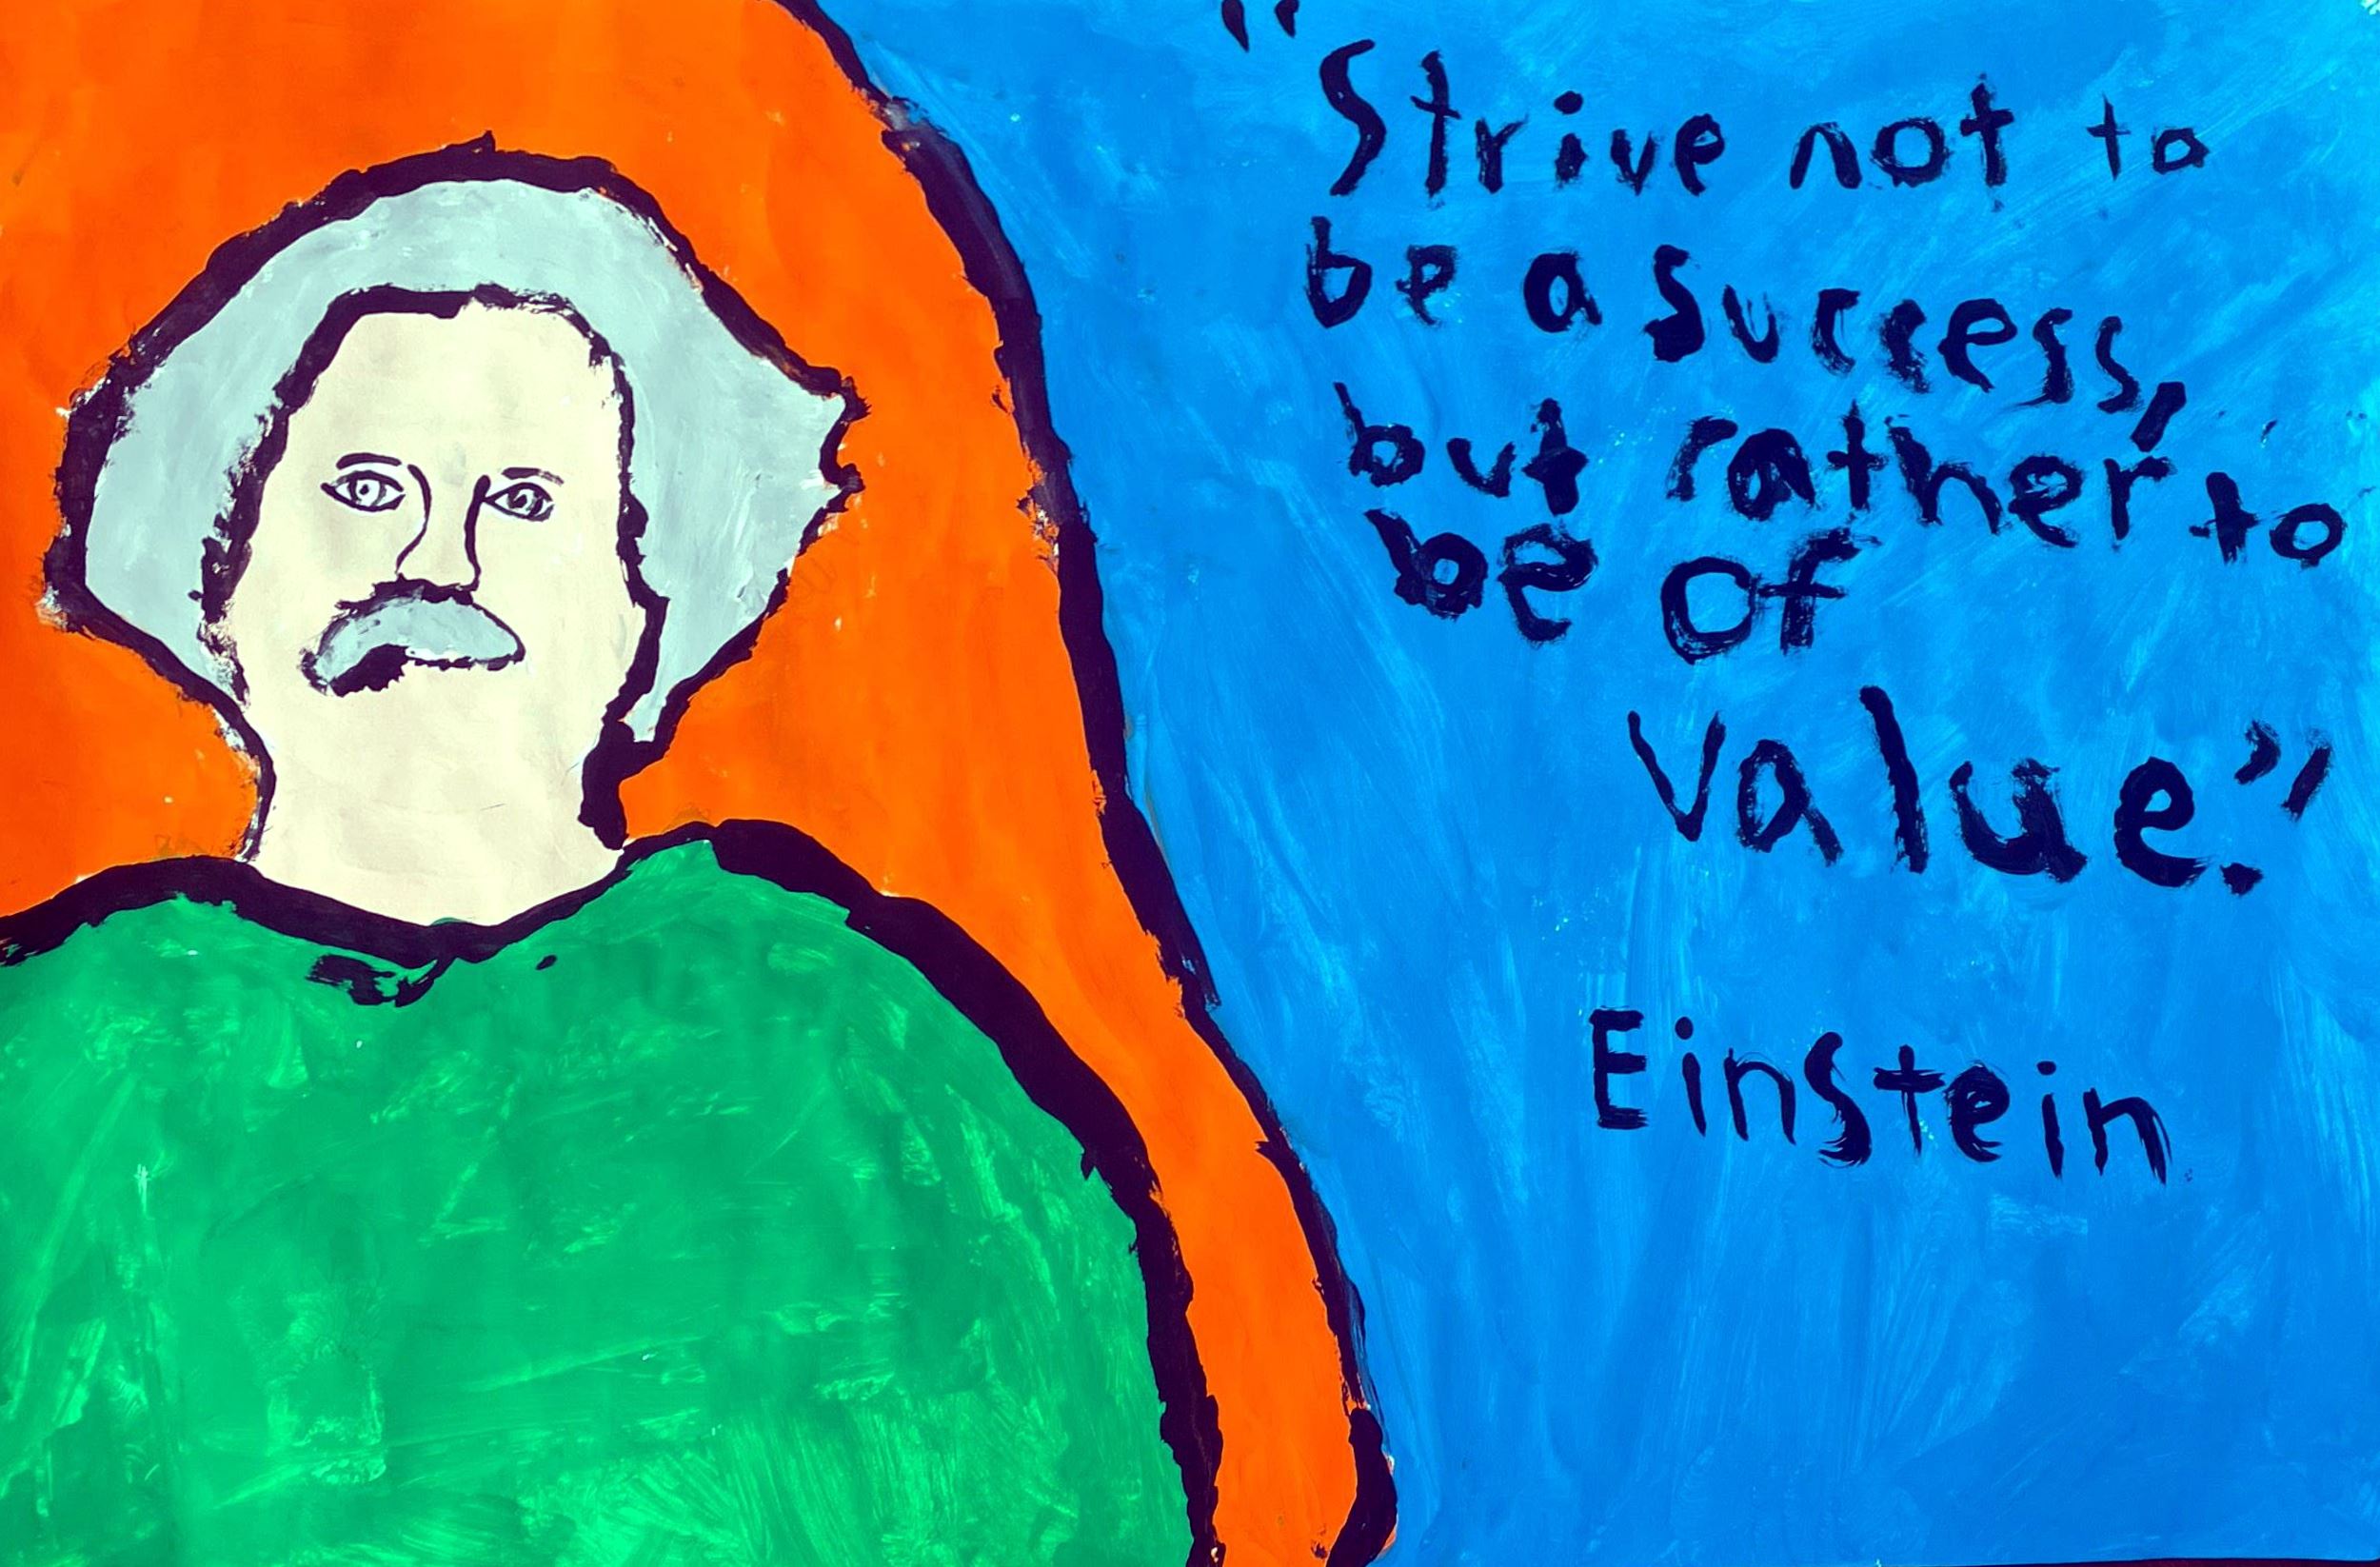 "Strive not to
be a success,
but rather to
be of
value."
Einstein